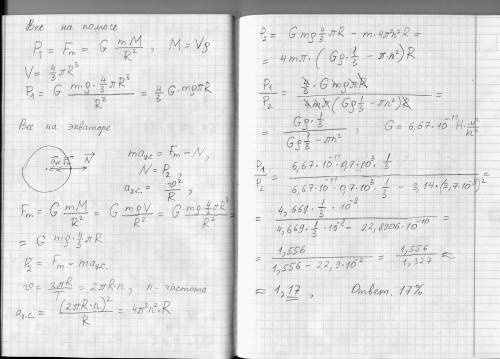 Вес на полюсе
P₁ = Fт = G mM/R², M = Vρ
V = 4/3 πR³
P₁ = G (m·ρ·4/3 πR³)/R² = 4/3 G·mρπR
Вес на экваторе
maц.с. = Fт − N,
N = P₂,
aц.с. = v²/R,
N
Fт = G mM/R² = G mρV/R² = G (mρ 4/3 πR³)/R² =
= G mρ·4/3 πR
P₂ = Fт − maц.с.
v = 2πR/T = 2πR·n, n - частота
aц.с. = (2πR·n)²/R = 4π²n²·R
P₂ = G mρ 4/3 πR − m·4π²n²R =
= 4mπ·(Gρ·1/3 − π·n²)R
P₁/P₂ = (4/3·G mρπR)/(4mπ(Gρ·1/3 − πn²)R) =
= (Gρ·1/3)/(Gρ 1/3 − πn²), G = 6,67·10⁻¹¹ Н·м²/кг²
P₁/P₂ = (6,67·10⁻¹¹·0,7·10³·1/3)/(6,67·10⁻¹¹·0,7·10³·1/3 − 3,14·(2,7·10⁻⁵)²) =
= (4,669·1/3·10⁻⁸)/(4,669·1/3·10⁻⁸ − 22,8906·10⁻¹⁰) =
= 1,556/(1,556 − 22,9·10⁻²) = 1,556/1,327 ≈
≈ 1,17, Ответ. 17%